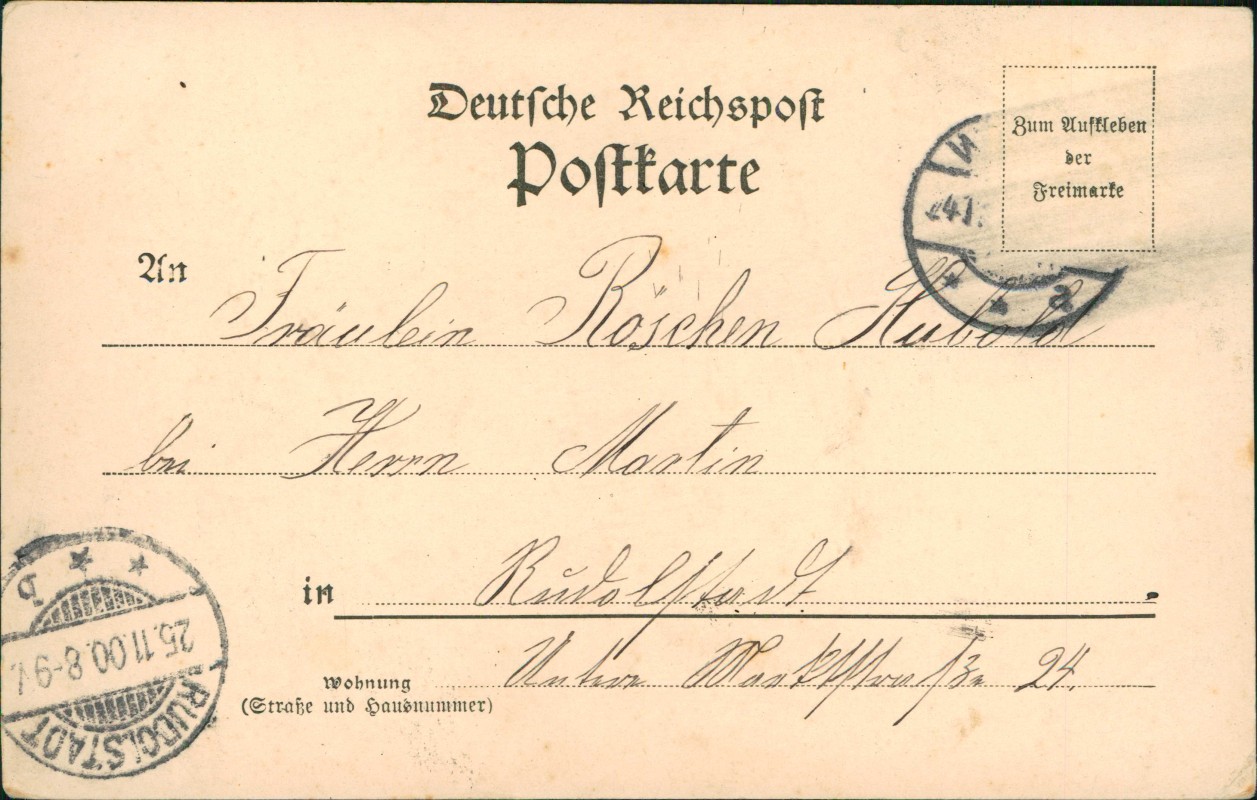 Deutsche Reichspost
Postkarte
Zum Aufkleben
der
Freimarke
An
Fräulein Röschen Hubold
bei Herrn Martin
in Rudolstadt
Untere Marktstraße 24.
Wohnung
(Straße und Hausnummer)
RUDOLSTADT
25.11.00.8-9V.